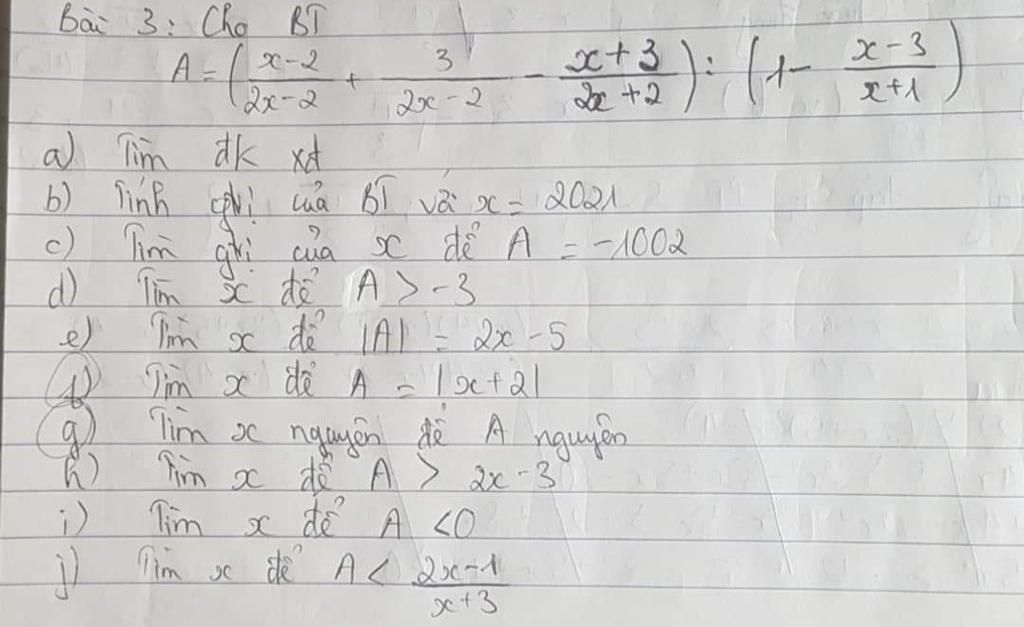 Bài 3: Cho BT
A = (x-2/2x-2 + 3/2x-2 - x+3/2x+2) : (1 - x-3/x+1)
a) Tìm đk xđ
b) Tính gtrị của BT với x = 2021
c) Tìm gtrị của x để A = -1002
d) Tìm x để A > -3
e) Tìm x để |A| = 2x - 5
f) Tìm x để A = |x+2|
g) Tìm x nguyên để A nguyên
h) Tìm x để A > 2x-3
i) Tìm x để A < 0
j) Tìm x để A < 2x-1/x+3